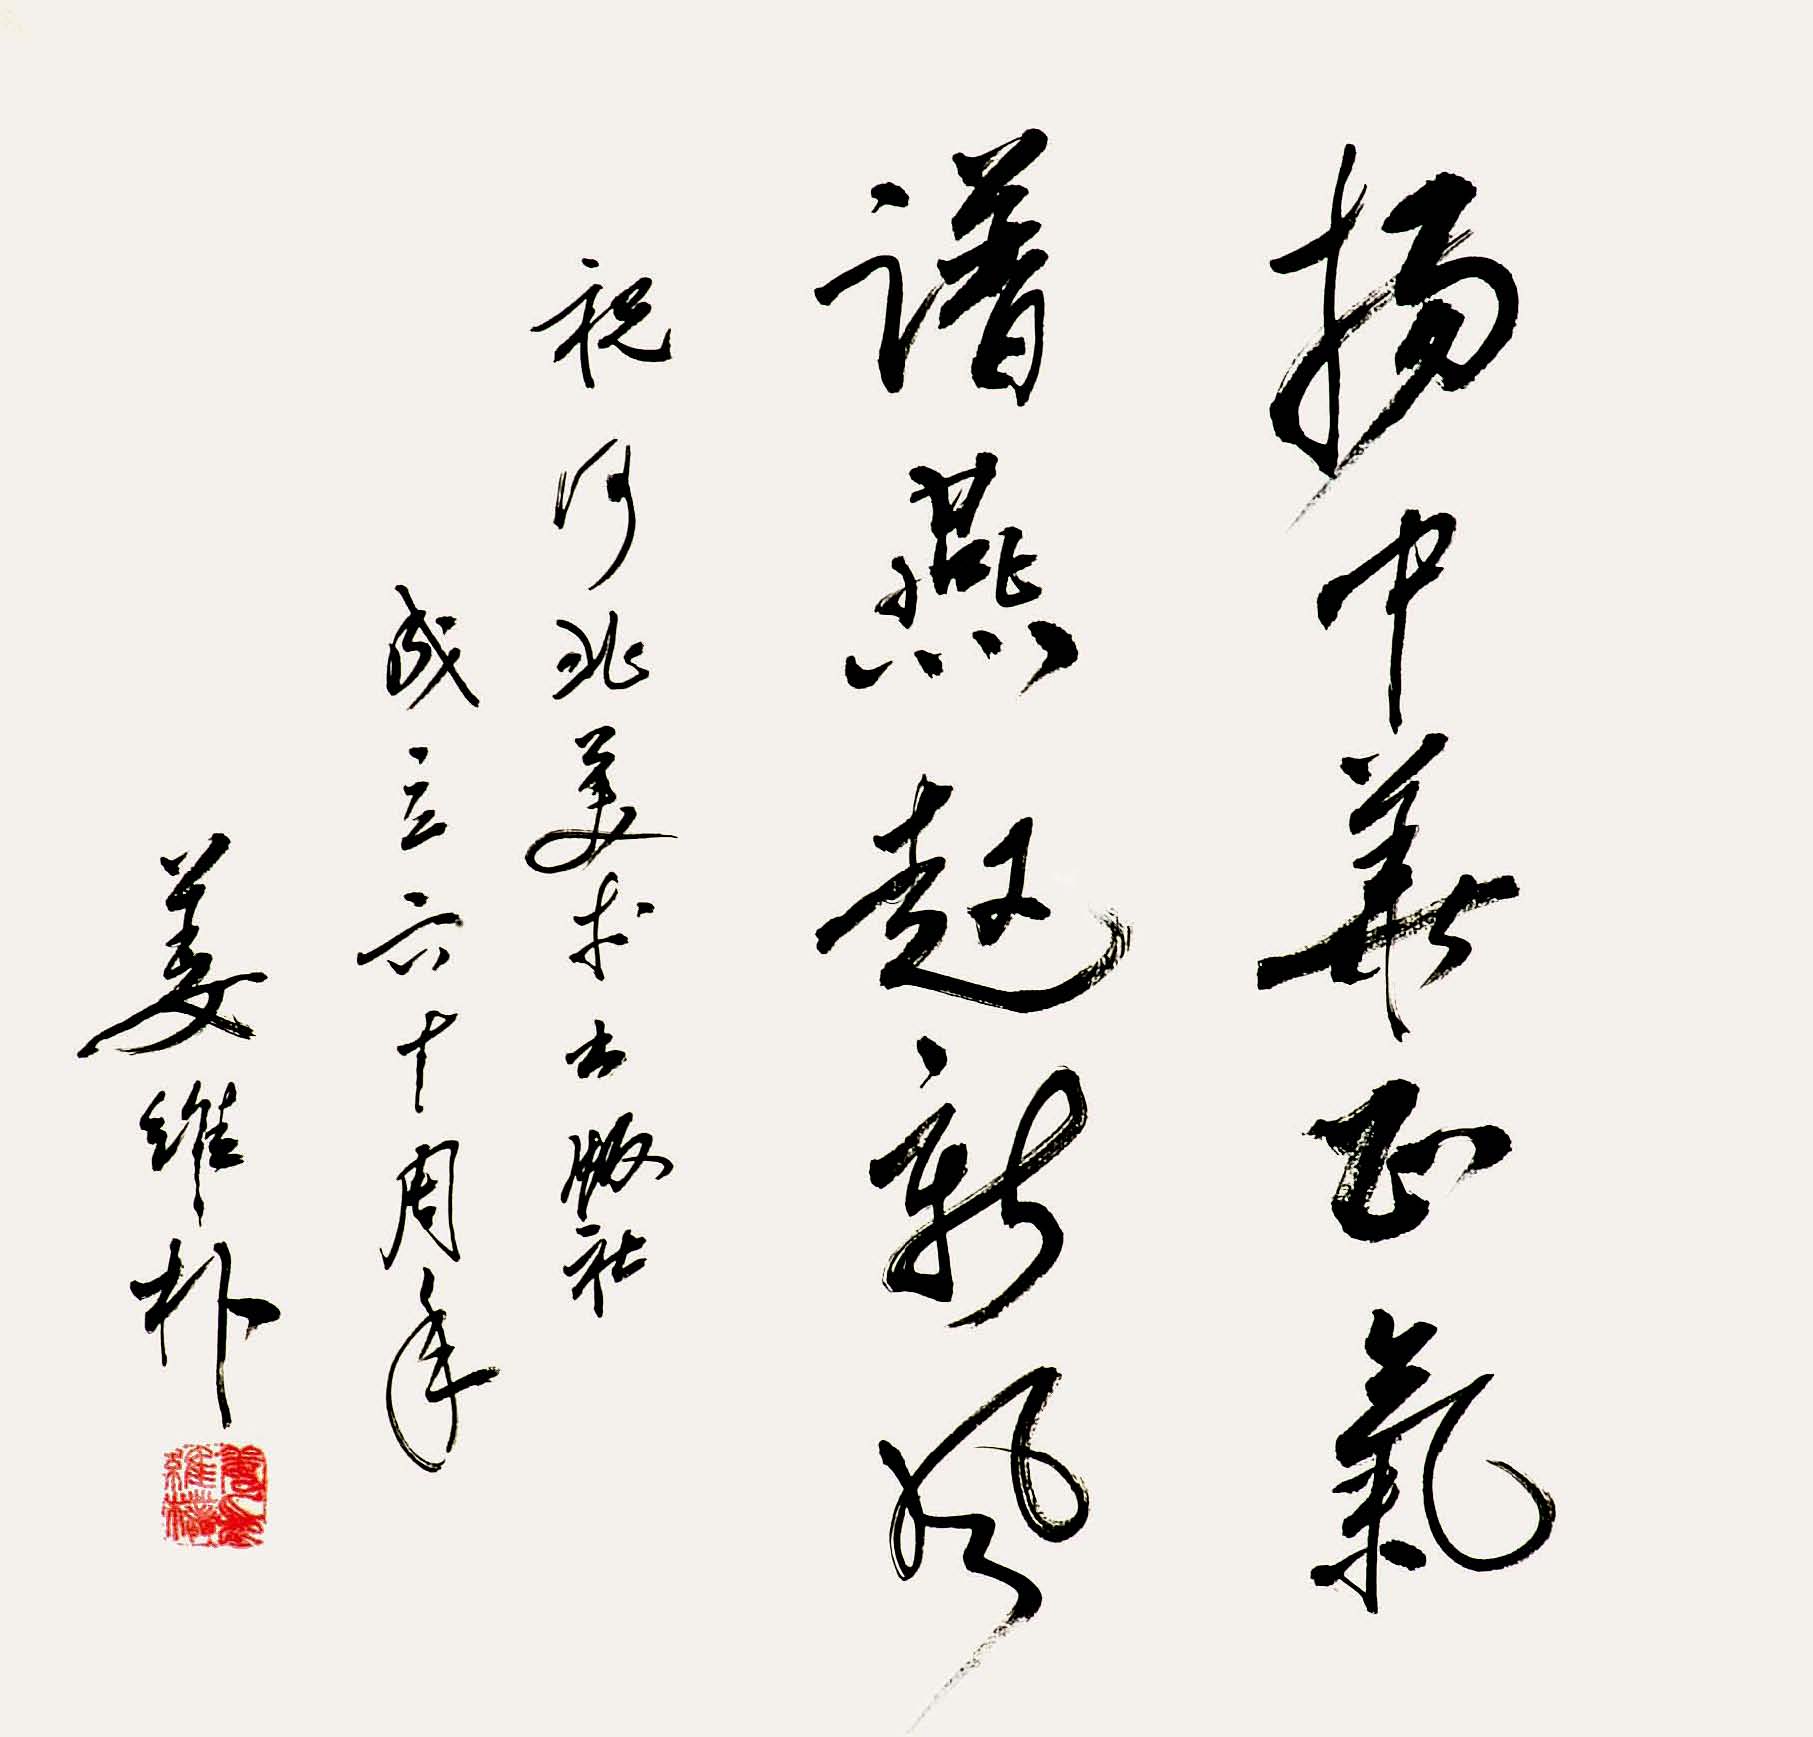 扬中華正氣
谱燕赵新风
祝河北美术出版社
成立六十周年
姜维朴